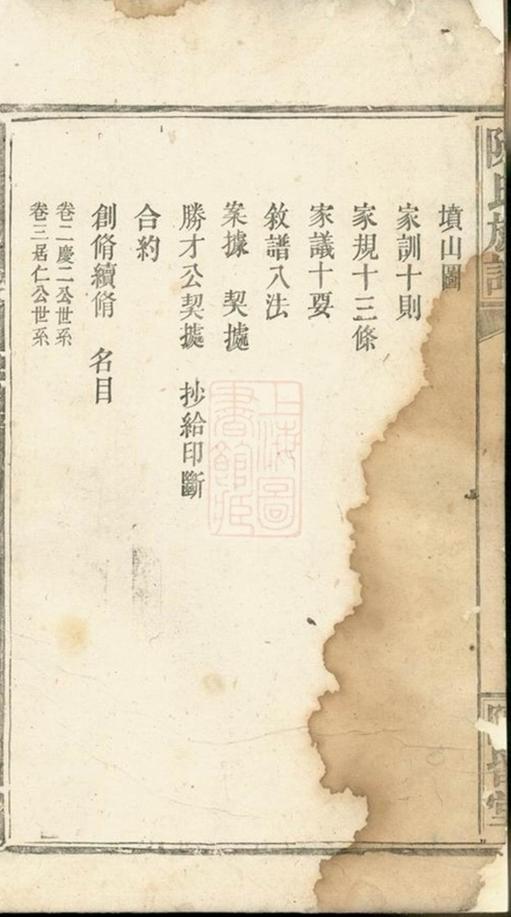 陳氏族譜
墳山圖
家訓十則
家規十三條
家議十要
敘譜入法
案據 契㨿
勝才公契㨿 抄給印斷
合約
創脩續脩 名目
卷二慶二公世系
卷三居仁公世系
上海圖書館藏